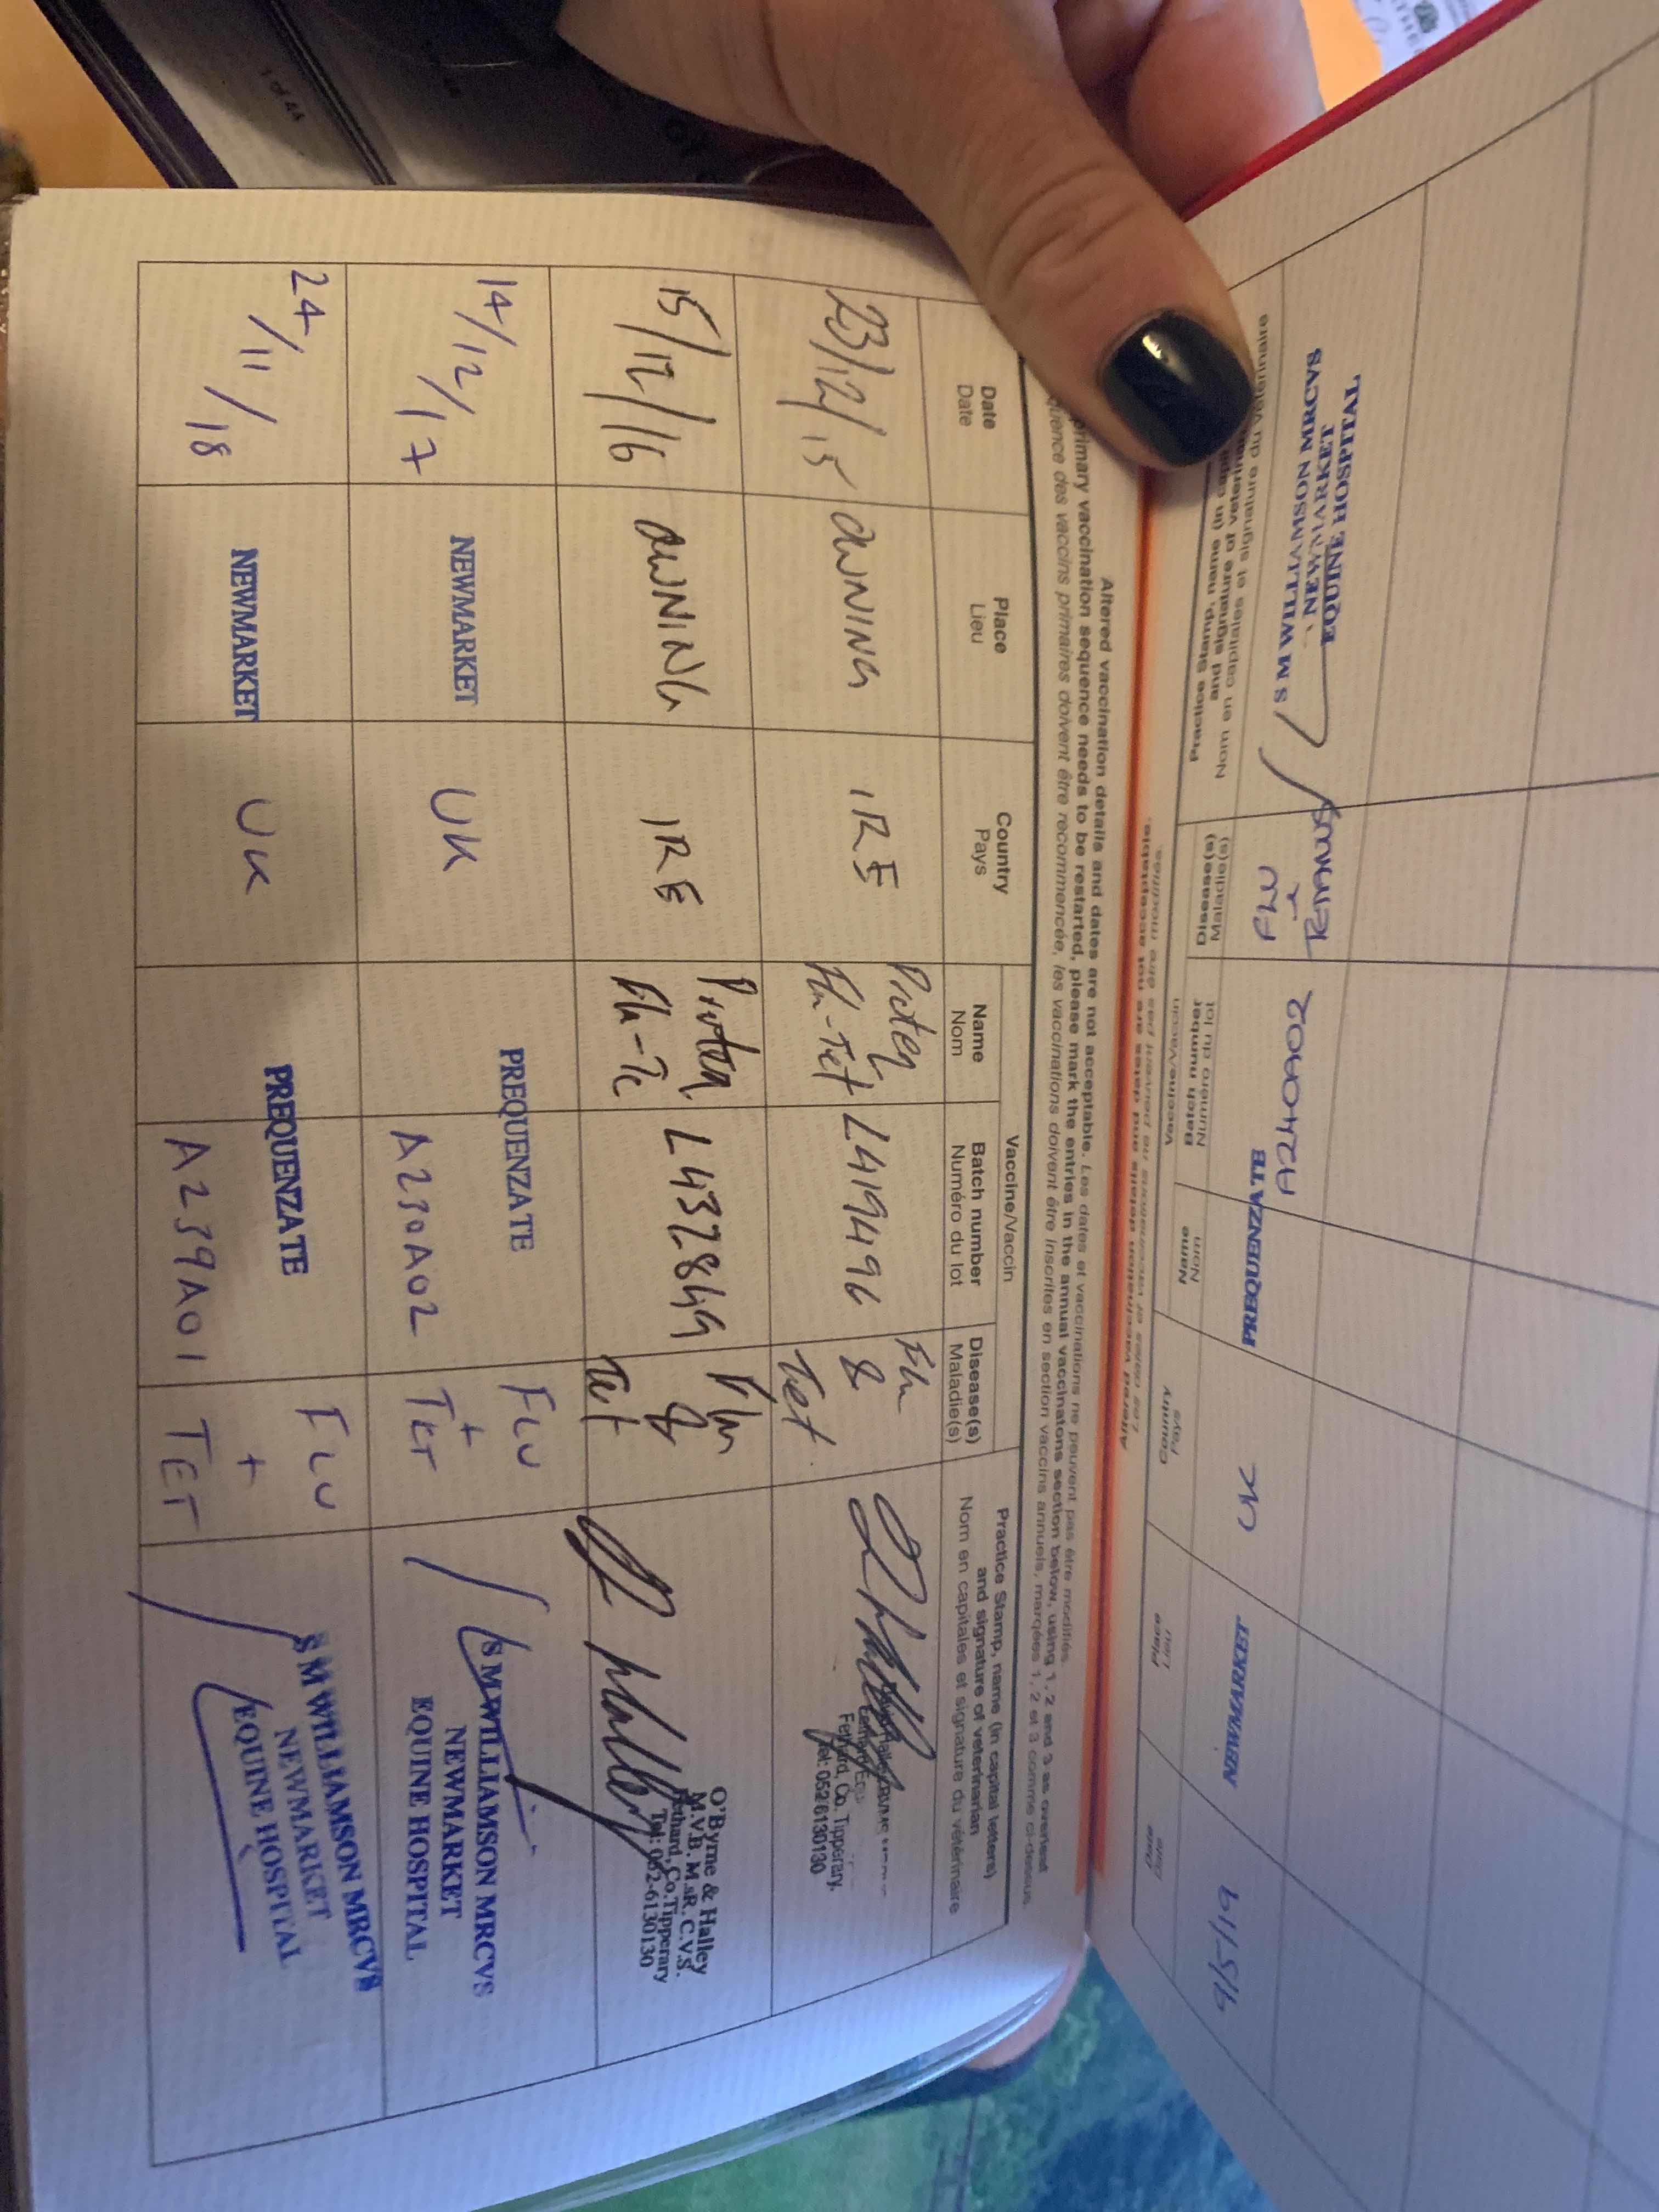 Altered vaccination details and dates are not acceptable. Les dates et vaccinations ne peuvent pas être modifiés.
primary vaccination sequence needs to be restarted, please mark the entries in the annual vaccinatons section below, using 1, 2 and 3 as
des vaccins primaires doivent être recommencée, les vaccinations doivent être inscrites en section vaccins annuels, marqées 1, 2 et 3 comme ci-dessus.
Date
Date
Place
Lieu
Country
Pays
Vaccine/Vaccin
Name
Nom
Batch number
Numéro du lot
Disease(s)
Maladie(s)
Practice Stamp, name (in capital letters)
and signature of veterinarian
Nom en capitales et signature du vétérinaire
23/12/15
OWNING
IRE
Proteq
Flu-Tet
L419496
Flu
&
Tet
Fethard, Co. Tipperary.
Tel: 052 6130130
15/12/16
OWNING
IRE
Proteq
Flu-Te
Flu
&
Tet
O'Byrne & Halley
M.V.B. M.R.C.V.S.
Fethard, Co.Tipperary
Tel: 052-6130130
14/12/17
NEWMARKET
UK
PREQUENZA TE
A230A02
FLU
+
TET
S M WILLIAMSON MRCVS
NEWMARKET
EQUINE HOSPITAL
24/11/18
NEWMARKET
UK
PREQUENZA TE
A239A01
FLU
+
TET
S M WILLIAMSON MRCVS
NEWMARKET
EQUINE HOSPITAL
Date
Place
Lieu
Country
Pays
Vaccine/Vaccin
Name
Nom
Batch number
Numéro du lot
Disease(s)
Maladie(s)
Practice Stamp, name (in
and signature of veterinarian
Nom en capitales et signature du vétérinaire
NEWMARKET
UK
PREQUENZA TE
A240A02
FLU
+
TETANUS
S M WILLIAMSON MRCVS
NEWMARKET
EQUINE HOSPITAL
1 of 44